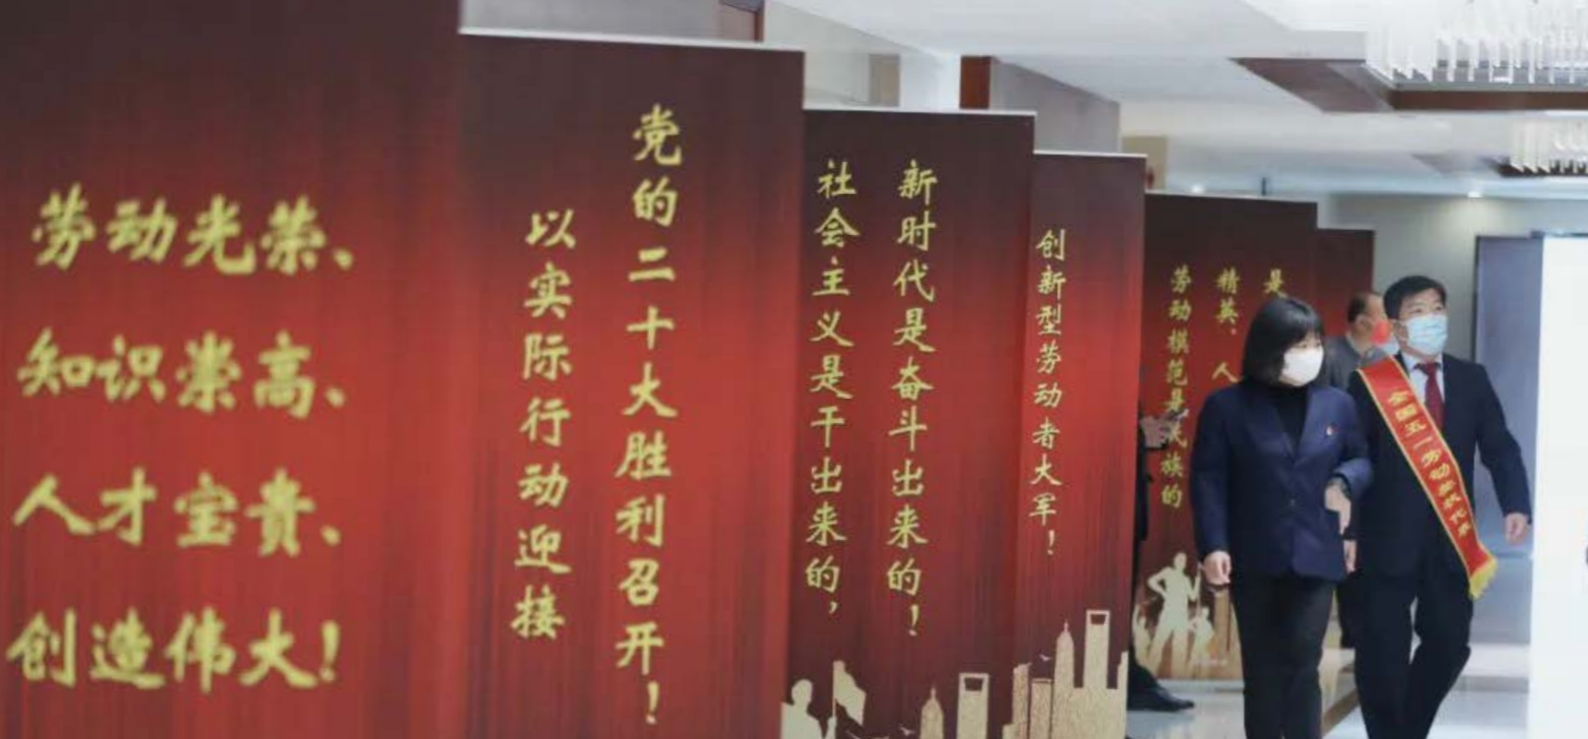 劳动光荣、
知识崇高、
人才宝贵、
创造伟大！
以实际行动迎接
党的二十大胜利召开！
社会主义是干出来的，
新时代是奋斗出来的！
创新型劳动者大军！
劳动模范是民族的
精英、人
是
全国五一劳动